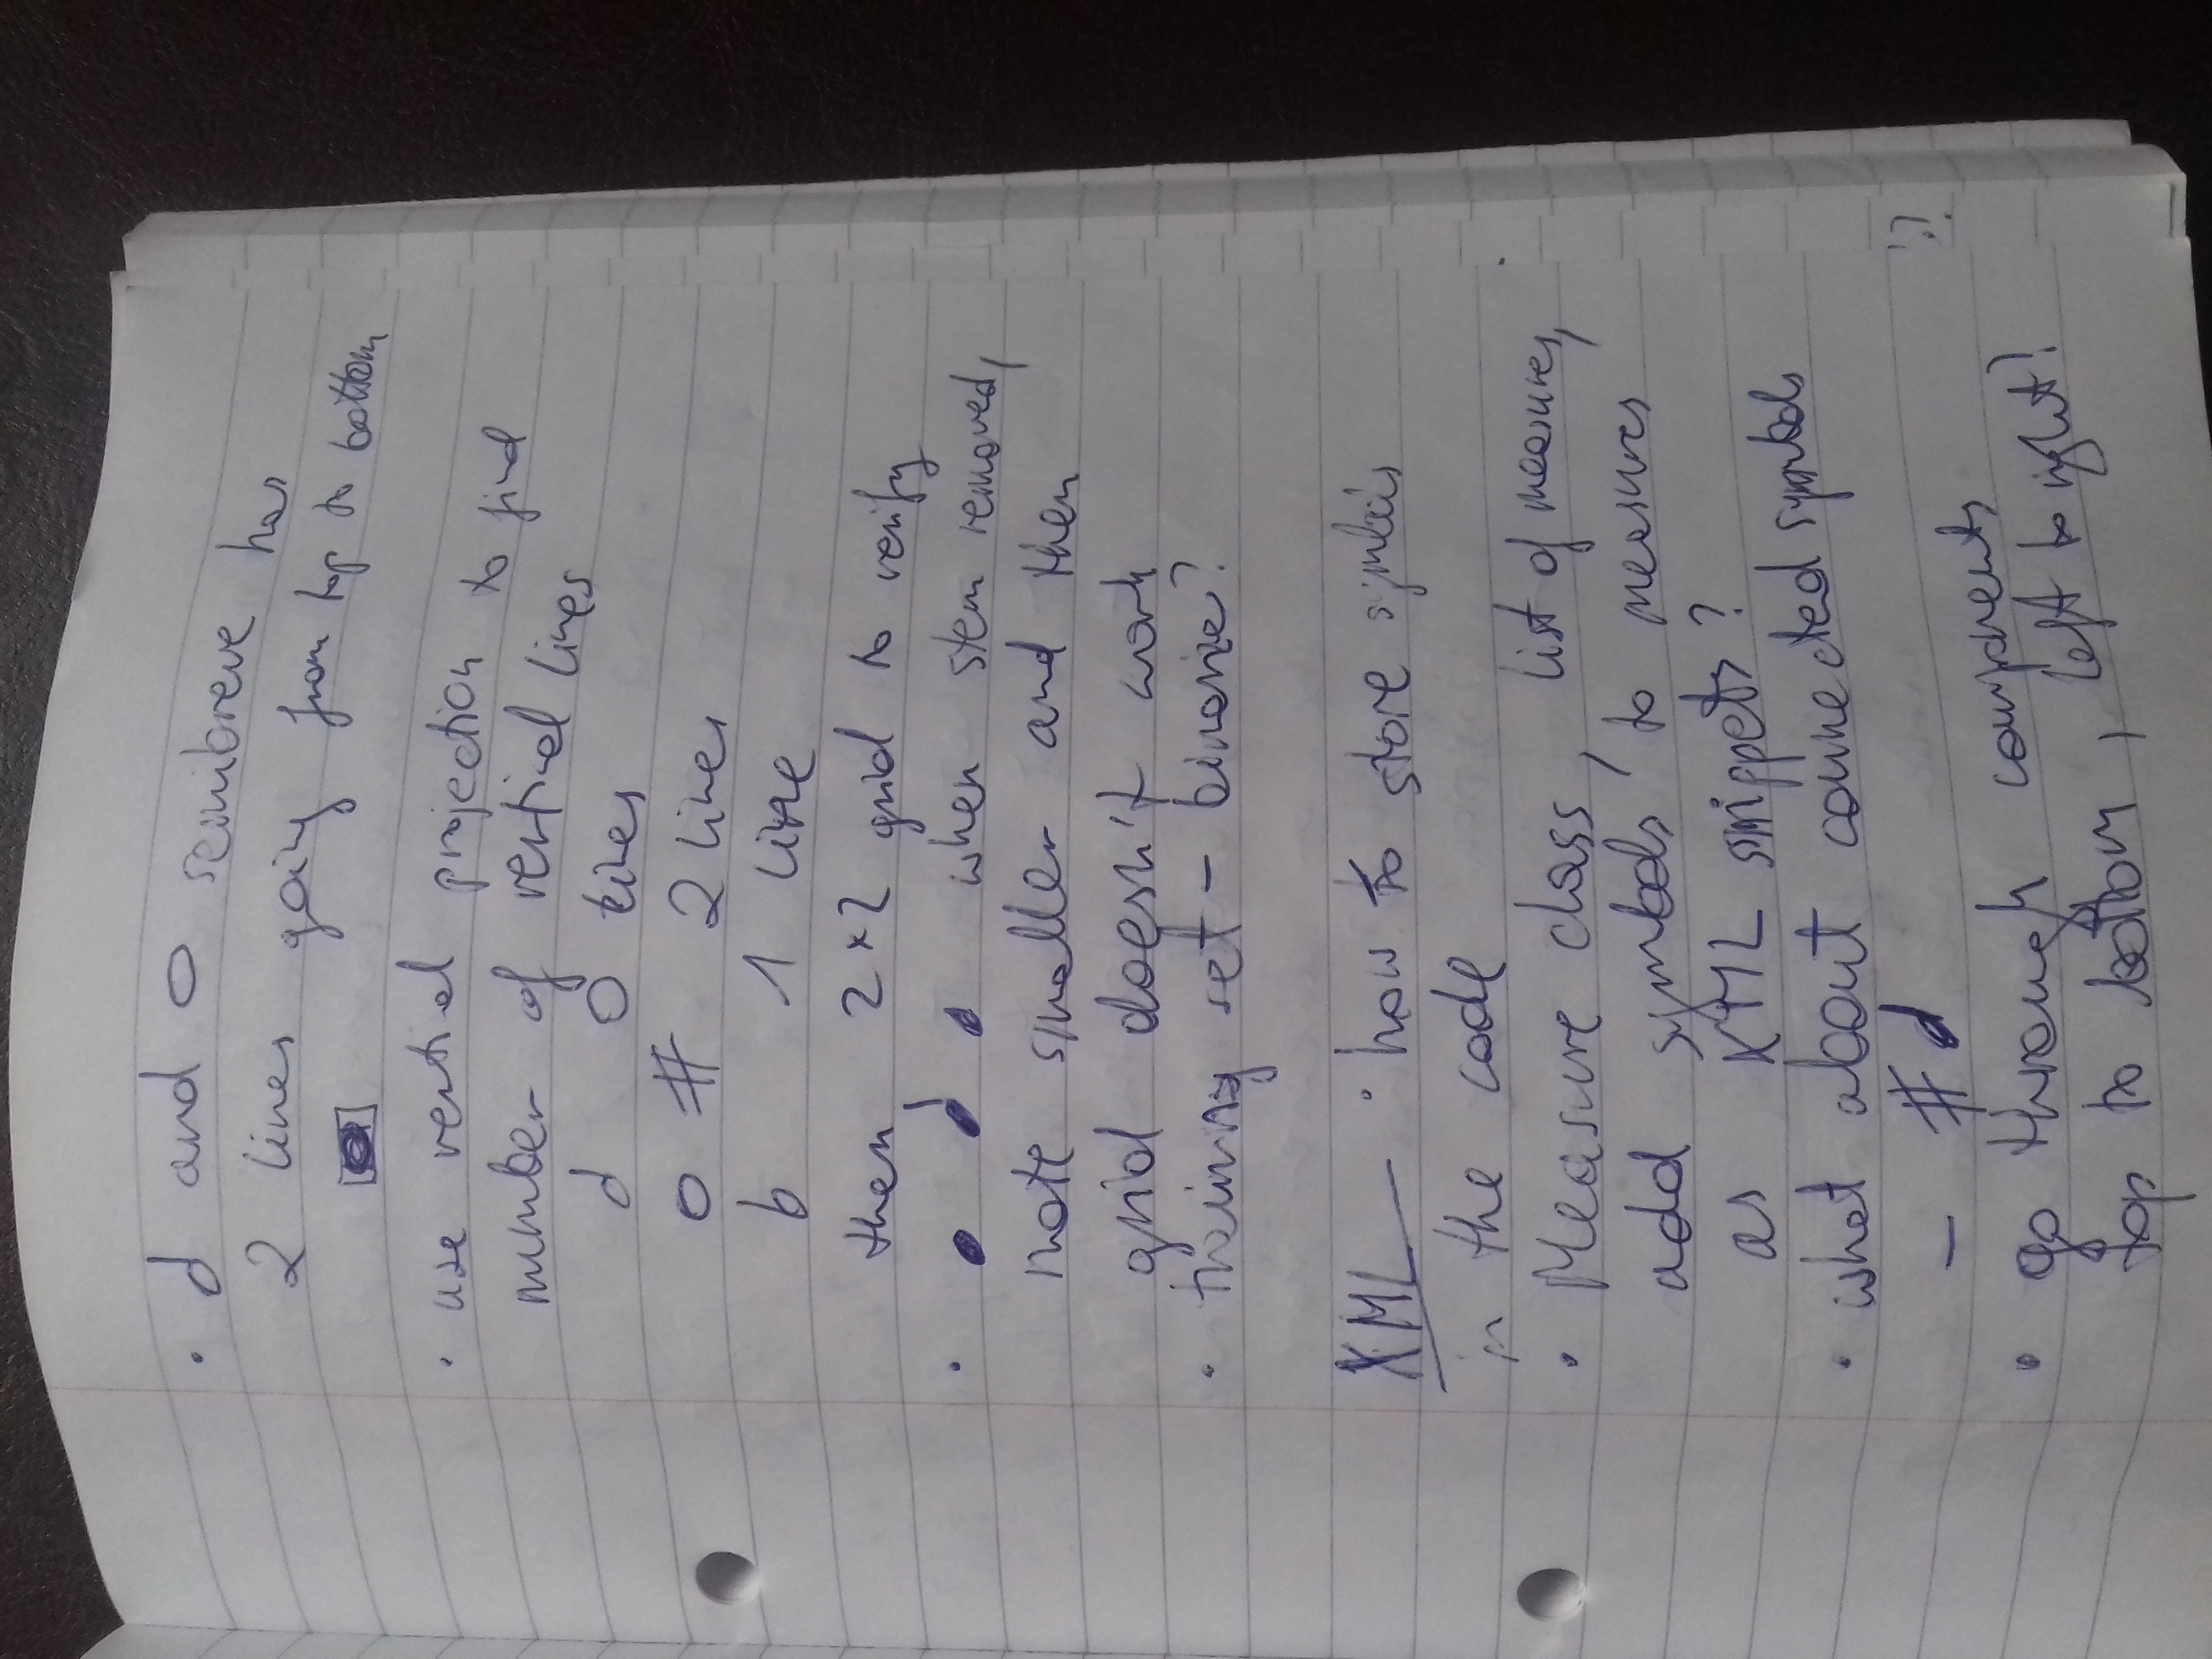 · d and O semibreve has
2 lines going from top to bottom
· use vertical projection to find
number of vertical lines
d 0 lines
o # 2 lines
b 1 line
then 2×2 grid to verify
· when stem removed,
note smaller and then
grid doesn't work
· training set - binarize?
XML - · how to store symbols
in the code
· Measure class, list of measures,
add symbols to measures
as XML snippets?
· what about connected symbols
- # d ??
· go through components
top to bottom, left to right?